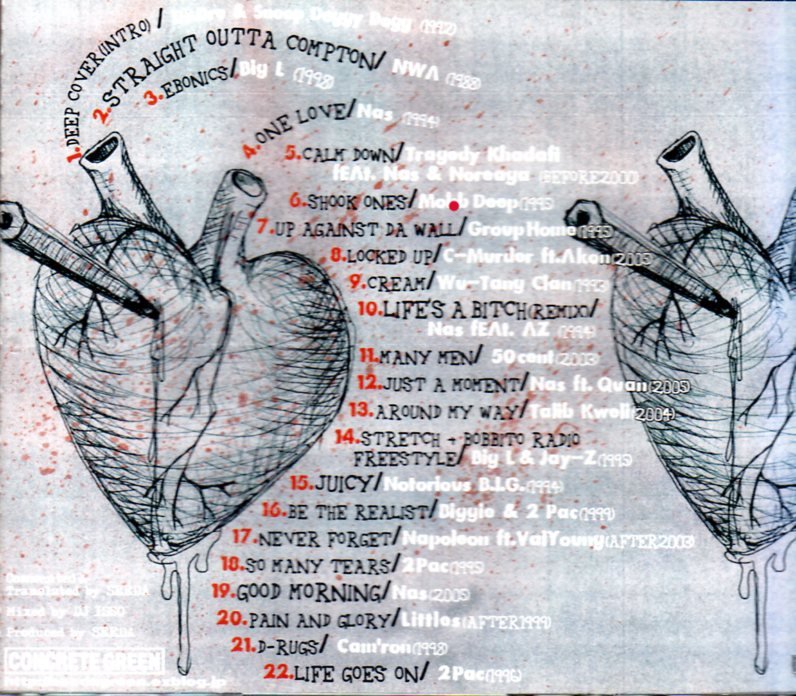 1.DEEP COVER(INTRO) / Dr.Dre & Snoop Doggy Dogg (1992)
2.STRAIGHT OUTTA COMPTON/ NWA (1988)
3.EBONICS/Big L (1998)
4.ONE LOVE/Nas (1994)
5.CALM DOWN/Tragedy Khadafi
fEAt. Nas & Noreaga (BEFORE2000)
6.SHOOK ONES/Mobb Deep(1995)
7.UP AGAINST DA WALL/Group Home(1995)
8.LOCKED UP/C-Murder ft.Akon(2005)
9.CREAM/Wu-Tang Clan(1993)
10.LIFE'S A BITCH(REMIX)/
Nas fEAt. AZ (1994)
11.MANY MEN/ 50cent(2003)
12.JUST A MOMENT/Nas ft. Quan(2005)
13.AROUND MY WAY/Talib Kweli(2004)
14.STRETCH + BOBBITO RADIO
FREESTYLE/Big L & Jay-Z(1995)
15.JUICY/Notorious B.I.G.(1994)
16.BE THE REALIST/Biggie & 2 Pac(1999)
17.NEVER FORGET/Napoleon ft.ValYoung(AFTER2003)
18.SO MANY TEARS/2Pac(1995)
19.GOOD MORNING/Nas(2005)
20.PAIN AND GLORY/Littles(AFTER1999)
21.D-RUGS/ Cam'ron(1998)
22.LIFE GOES ON/ 2Pac(1996)
Translated by SEEDA
Mixed by DJ ISSO
Produced by SEEDA
CONCRETE GREEN